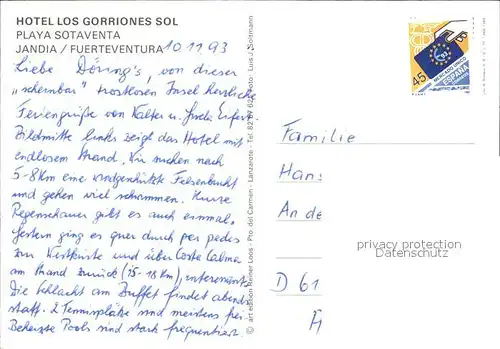 HOTEL LOS GORRIONES SOL
PLAYA SOTAVENTA
JANDIA / FUERTEVENTURA 10.11.93
Liebe Döring's, von dieser
"scheinbar" trostlosen Insel herzliche
Feriengrüße von Walter u.
Bildmitte links zeigt das Hotel mit
endlosem Strand. Wir suchen nach
5-8km eine windgeschützte Felsenbucht
und gehen viel schwimmen. Kurze
Regenschauer gibt es auch einmal.
Gestern ging es quer durch per pedes
zur Westküste und über Costa Calma
am Strand zurück (15-18 km), interessant
Die Schlacht am Buffet findet abends
statt. 2 Tennisplätze sind meistens frei
Beheizte Pools sind stark frequentiert.
© art edition Reiner Loos - Pto. del Carmen - Lanzarote - Tel. 82 Luis J. Soltmann
45
ESPAÑA
93
Familie
Han
An de
D 61
privacy protection
Datenschutz